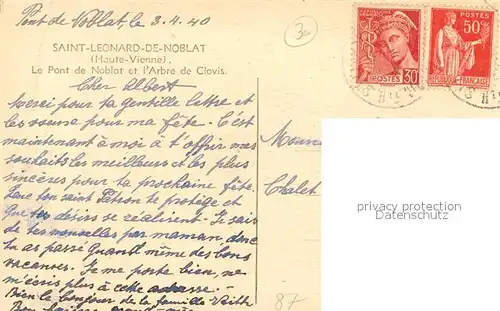 Pont de Noblat, le 3.4.40
30
SAINT-LEONARD-DE-NOBLAT
(Haute-Vienne).
Le Pont de Noblat et l'Arbre de Clovis.
POSTES 30
50c
POSTES
REPUBLIQUE FRANÇAISE
Cher Albert
Merci pour ta gentille lettre et
les vœux pour ma fête. C'est
maintenant à moi à t'offrir mes
souhaits les meilleurs et les plus
sincères pour ta prochaine fête.
Que ton saint Patron te protège et
que tes désirs se réalisent. Je sais
de tes nouvelles par maman, donc
tu as passé quand même des bons
vacances. Je me porte bien, ne
m'écris plus à cette adresse.
Bien le bonjour de la famille
Bons baisers
Chalet
privacy protection
Datenschutz
87